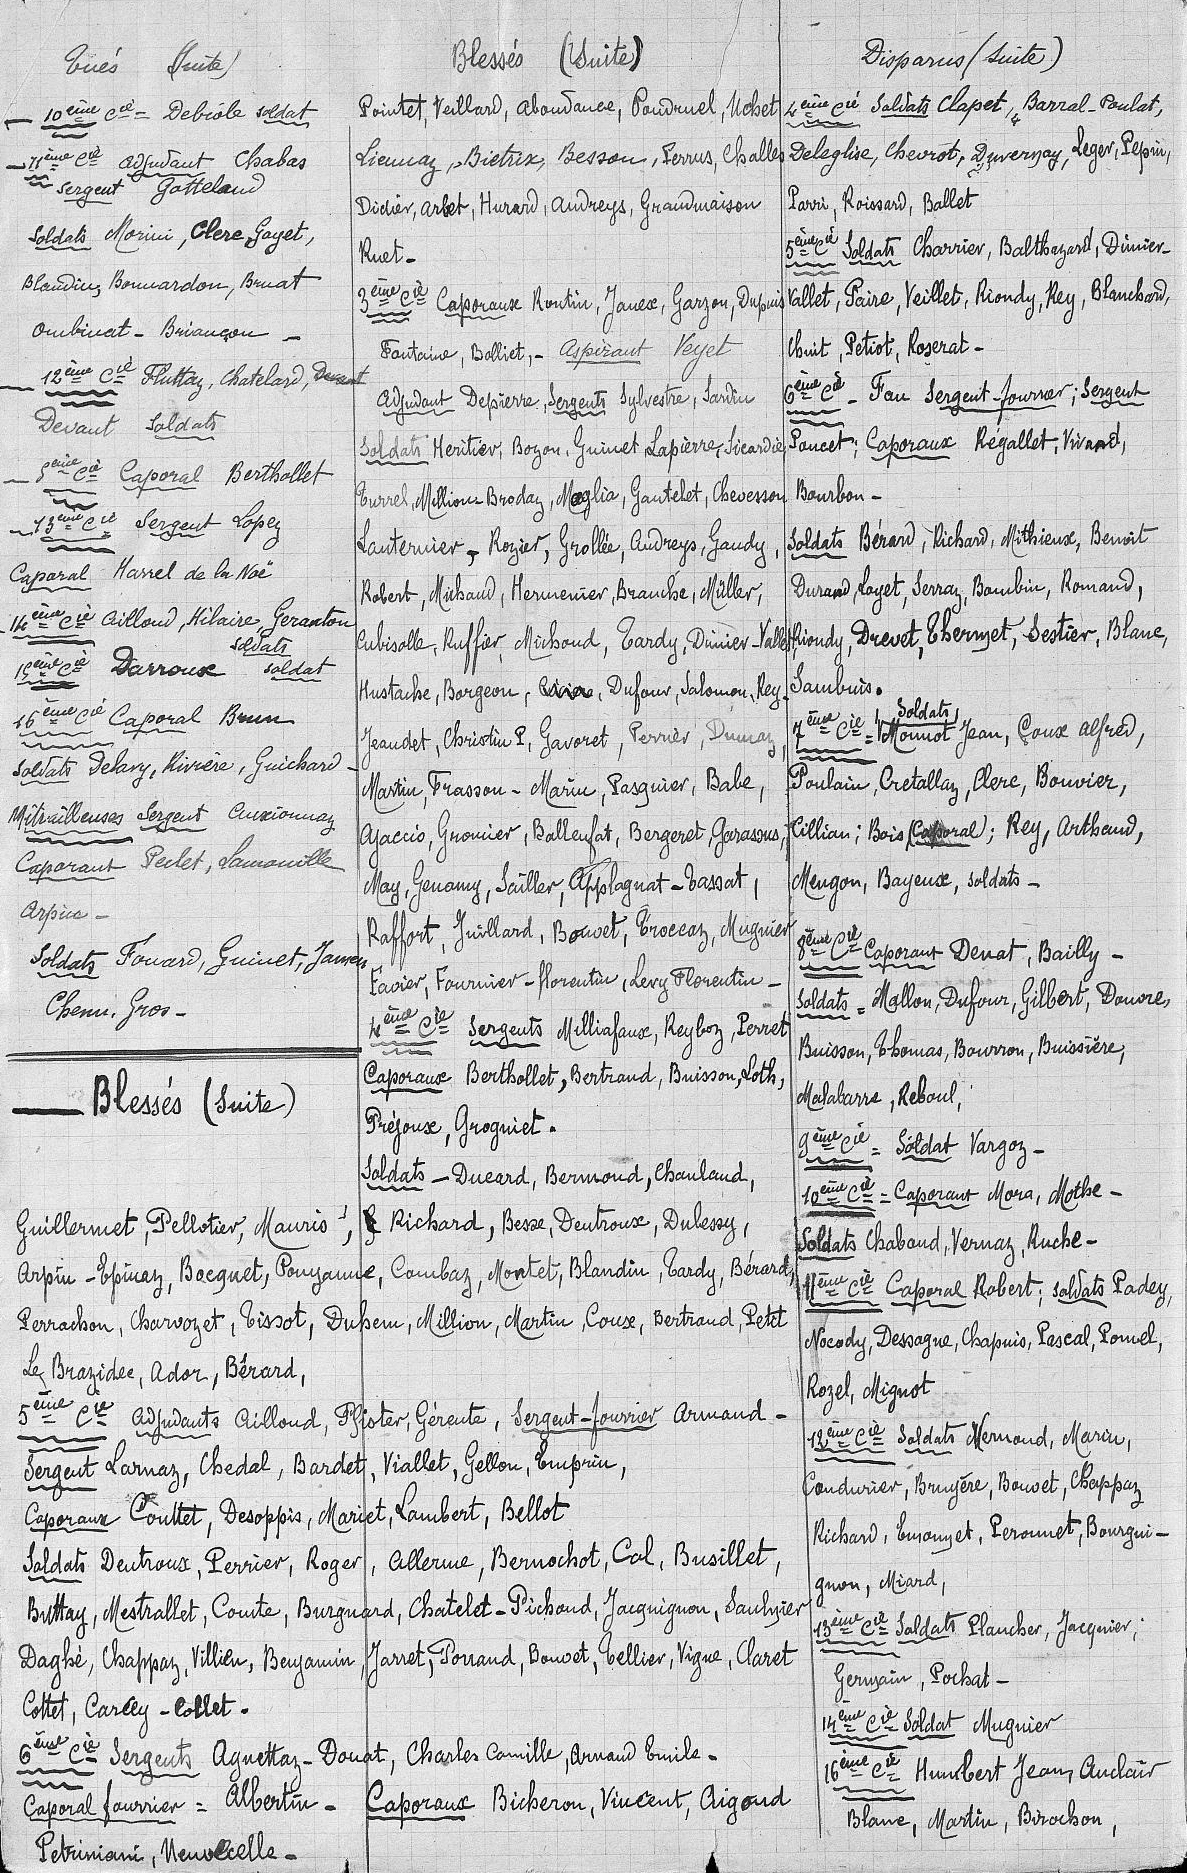 Tués (Suite)
10ème Cie = Debiole soldat
11ème Cie adjudant Chabas
Sergent Gotteland
Soldats Morini, Clerc, Gayet,
Blandin, Bonnardon, Bruat
Ombinat - Briançon -
12ème Cie Fluttaz, Chatelard,
Devant Soldats
8ème Cie Caporal Berthollet
13ème Cie Sergent Lopez
Caporal Harrel de la Noë
14ème Cie Ailloud, Hilaire, Geranton
soldats
15ème Cie Darroux soldat
16ème Cie Caporal Brun
Soldats Delary, Rivière, Guichard -
Mitrailleuses Sergent Curxionnaz
Caporaux Peclet, Lamouille
Arpin -
Soldats Fouard, Guinet, Jansen
Chenu, Gros -
Blessés (Suite)
Pointet, Veillard, Abondance, Poudruel, Uchet
Liennaz, Bietrix, Besson, Perrus, Challes
Didier, Arbet, Hurard, Audreys, Grandmaison
Ruet -
3ème Cie Caporaux Routin, Janex, Garzon, Dupuis
Fontaine, Bolliet, - Aspirant Veyet
Adjudant Depierre, Sergents Sylvestre, Jardin
Soldats Heritier, Bozon, Guinet, Lapierre, Sicardie
Turrel, Million-Brodaz, Moglia, Gautelet, Chevesson
Lanternier, Rozier, Grollée, Audreys, Gaudy,
Robert, Michaud, Hermenier, Branche, Müller,
Cubisolle, Ruffier, Michoud, Tardy, Dimier-Vallet
Hustache, Borgeon, Dufour, Salomon, Rey -
Jeandet, Christin P, Gavoret, Perrier, Dumaz,
Martin, Frasson - Marin, Pasquier, Babe,
Ajaccis, Gronier, Ballenfat, Bergeret, Garassus,
May, Genamy, Sailler, Applagnat - Tassat,
Raffort, Juillard, Bouvet, Troccaz, Mugnier
Favier, Fournier - florentin, Levy Florentin -
4ème Cie Sergents Milliafaux, Reyboz, Perret
Caporaux Berthollet, Bertrand, Buisson, Loth,
Préjoux, Grogniet.
Soldats - Ducard, Bermond, Chauland,
Disparus (Suite)
4ème Cie Soldats Clapet, Barral-Poulat,
Deleglise, Chevrot, Duvernay, Leger, Pepin,
Parri, Roissard, Ballet
5ème Cie Soldats Charrier, Balthazard, Dimier-
Vallet, Faire, Veillet, Riondy, Rey, Blanchard,
Chuit, Petiot, Roserat -
6ème Cie - Fau Sergent-fourrier; Sergent
Poncet; Caporaux Régallet, Vivand,
Bourbon -
Soldats Bérard, Richard, Mithieux, Benoit
Durand, Loyet, Serraz, Bambin, Romand,
Riondy, Drevet, Thermet, Sestier, Blanc,
Sambuis.
Soldats
7ème Cie = Monnot Jean, Coux Alfred,
Poulain, Cretallaz, Clerc, Bouvier,
Cillian; Bois (Caporal); Rey, Arthaud,
Mengon, Bayeux, soldats -
8ème Cie Caporaux Denat, Bailly -
Soldats = Mallon, Dufour, Gilbert, Donore,
Buisson, Thomas, Bourron, Buissière,
Malabarre, Reboul,
9ème Cie = Soldat Vargoz -
10ème Cie = Caporaux Mora, Mothe -
Soldats Chaboud, Vernaz, Ruche -
11ème Cie Caporal Robert; soldats Padey,
Nocody, Dessagne, Chapuis, Pascal, Pomel,
Rozel, Mignot
12ème Cie Soldats Mermond, Marin,
Condurier, Bruyère, Bouvet, Chappaz
Richard, Emonzet, Peronnet, Bourgui-
gnon, Miard,
13ème Cie Soldats Plancher, Jacquier,
Germain, Pochat -
14ème Cie Soldat Mugnier
16ème Cie Humbert Jean, Auclair
Blanc, Martin, Birochon,
Blessés (Suite)
Guillermet, Pellotier, Mauris, Richard, Besse, Deutroux, Dubessy,
Arpin - Epinaz, Bocquet, Pouyanne, Combaz, Montet, Blandin, Tardy, Bérard,
Perrachon, Charvozet, Tissot, Duhem, Million, Martin, Coux, Bertrand, Petit
Le Brazidec, Ador, Bérard,
5ème Cie Adjudants Ailloud, Pfister, Gérente, Sergent-fourrier Armand -
Sergent Larnaz, Chedal, Bardet, Viallet, Gellon, Emprin,
Caporaux Couttet, Desoppis, Mariet, Lambert, Bellot
Soldats Deutroux, Perrier, Roger, Allerme, Bernochot, Col, Busillet,
Buttay, Mestrallet, Comte, Burgnard, Chatelet - Pichoud, Jacquignon, Saulnier
Daghé, Chappaz, Villien, Benjamin, Jarret, Porrand, Bouvet, Tellier, Vigne, Claret
Cottet, Carcey - Collet.
6ème Cie Sergents Agnettaz - Donat, Charles Camille, Arnaud Emile -
Caporal fourrier = Albertin - Caporaux Bicheron, Vincent, Aigoud
Petriniani, Neuvecelle -